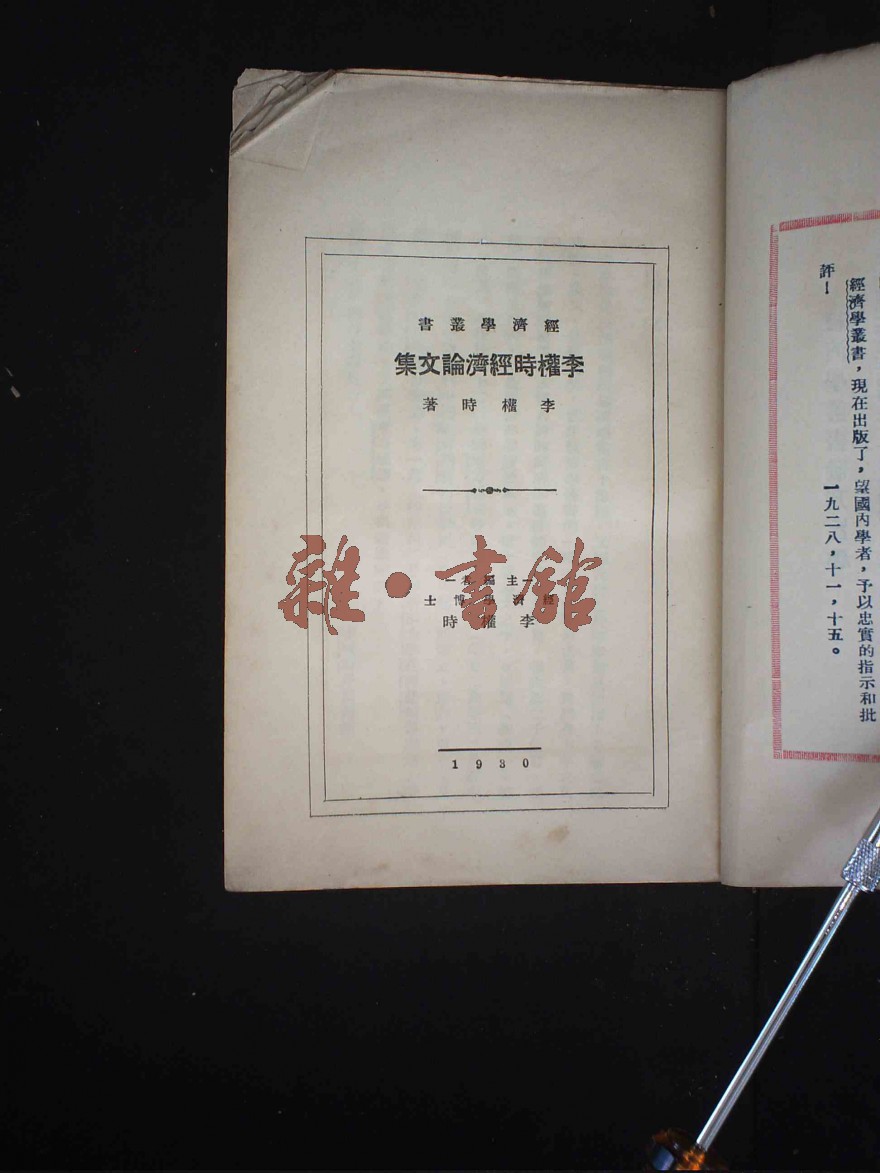 經濟學叢書
李權時經濟論文集
李權時著
主編者
經濟學博士
李權時
1930
雜·書館
經濟學叢書，現在出版了，望國內學者，予以忠實的指示和批
評！
一九二八，十一，十五。